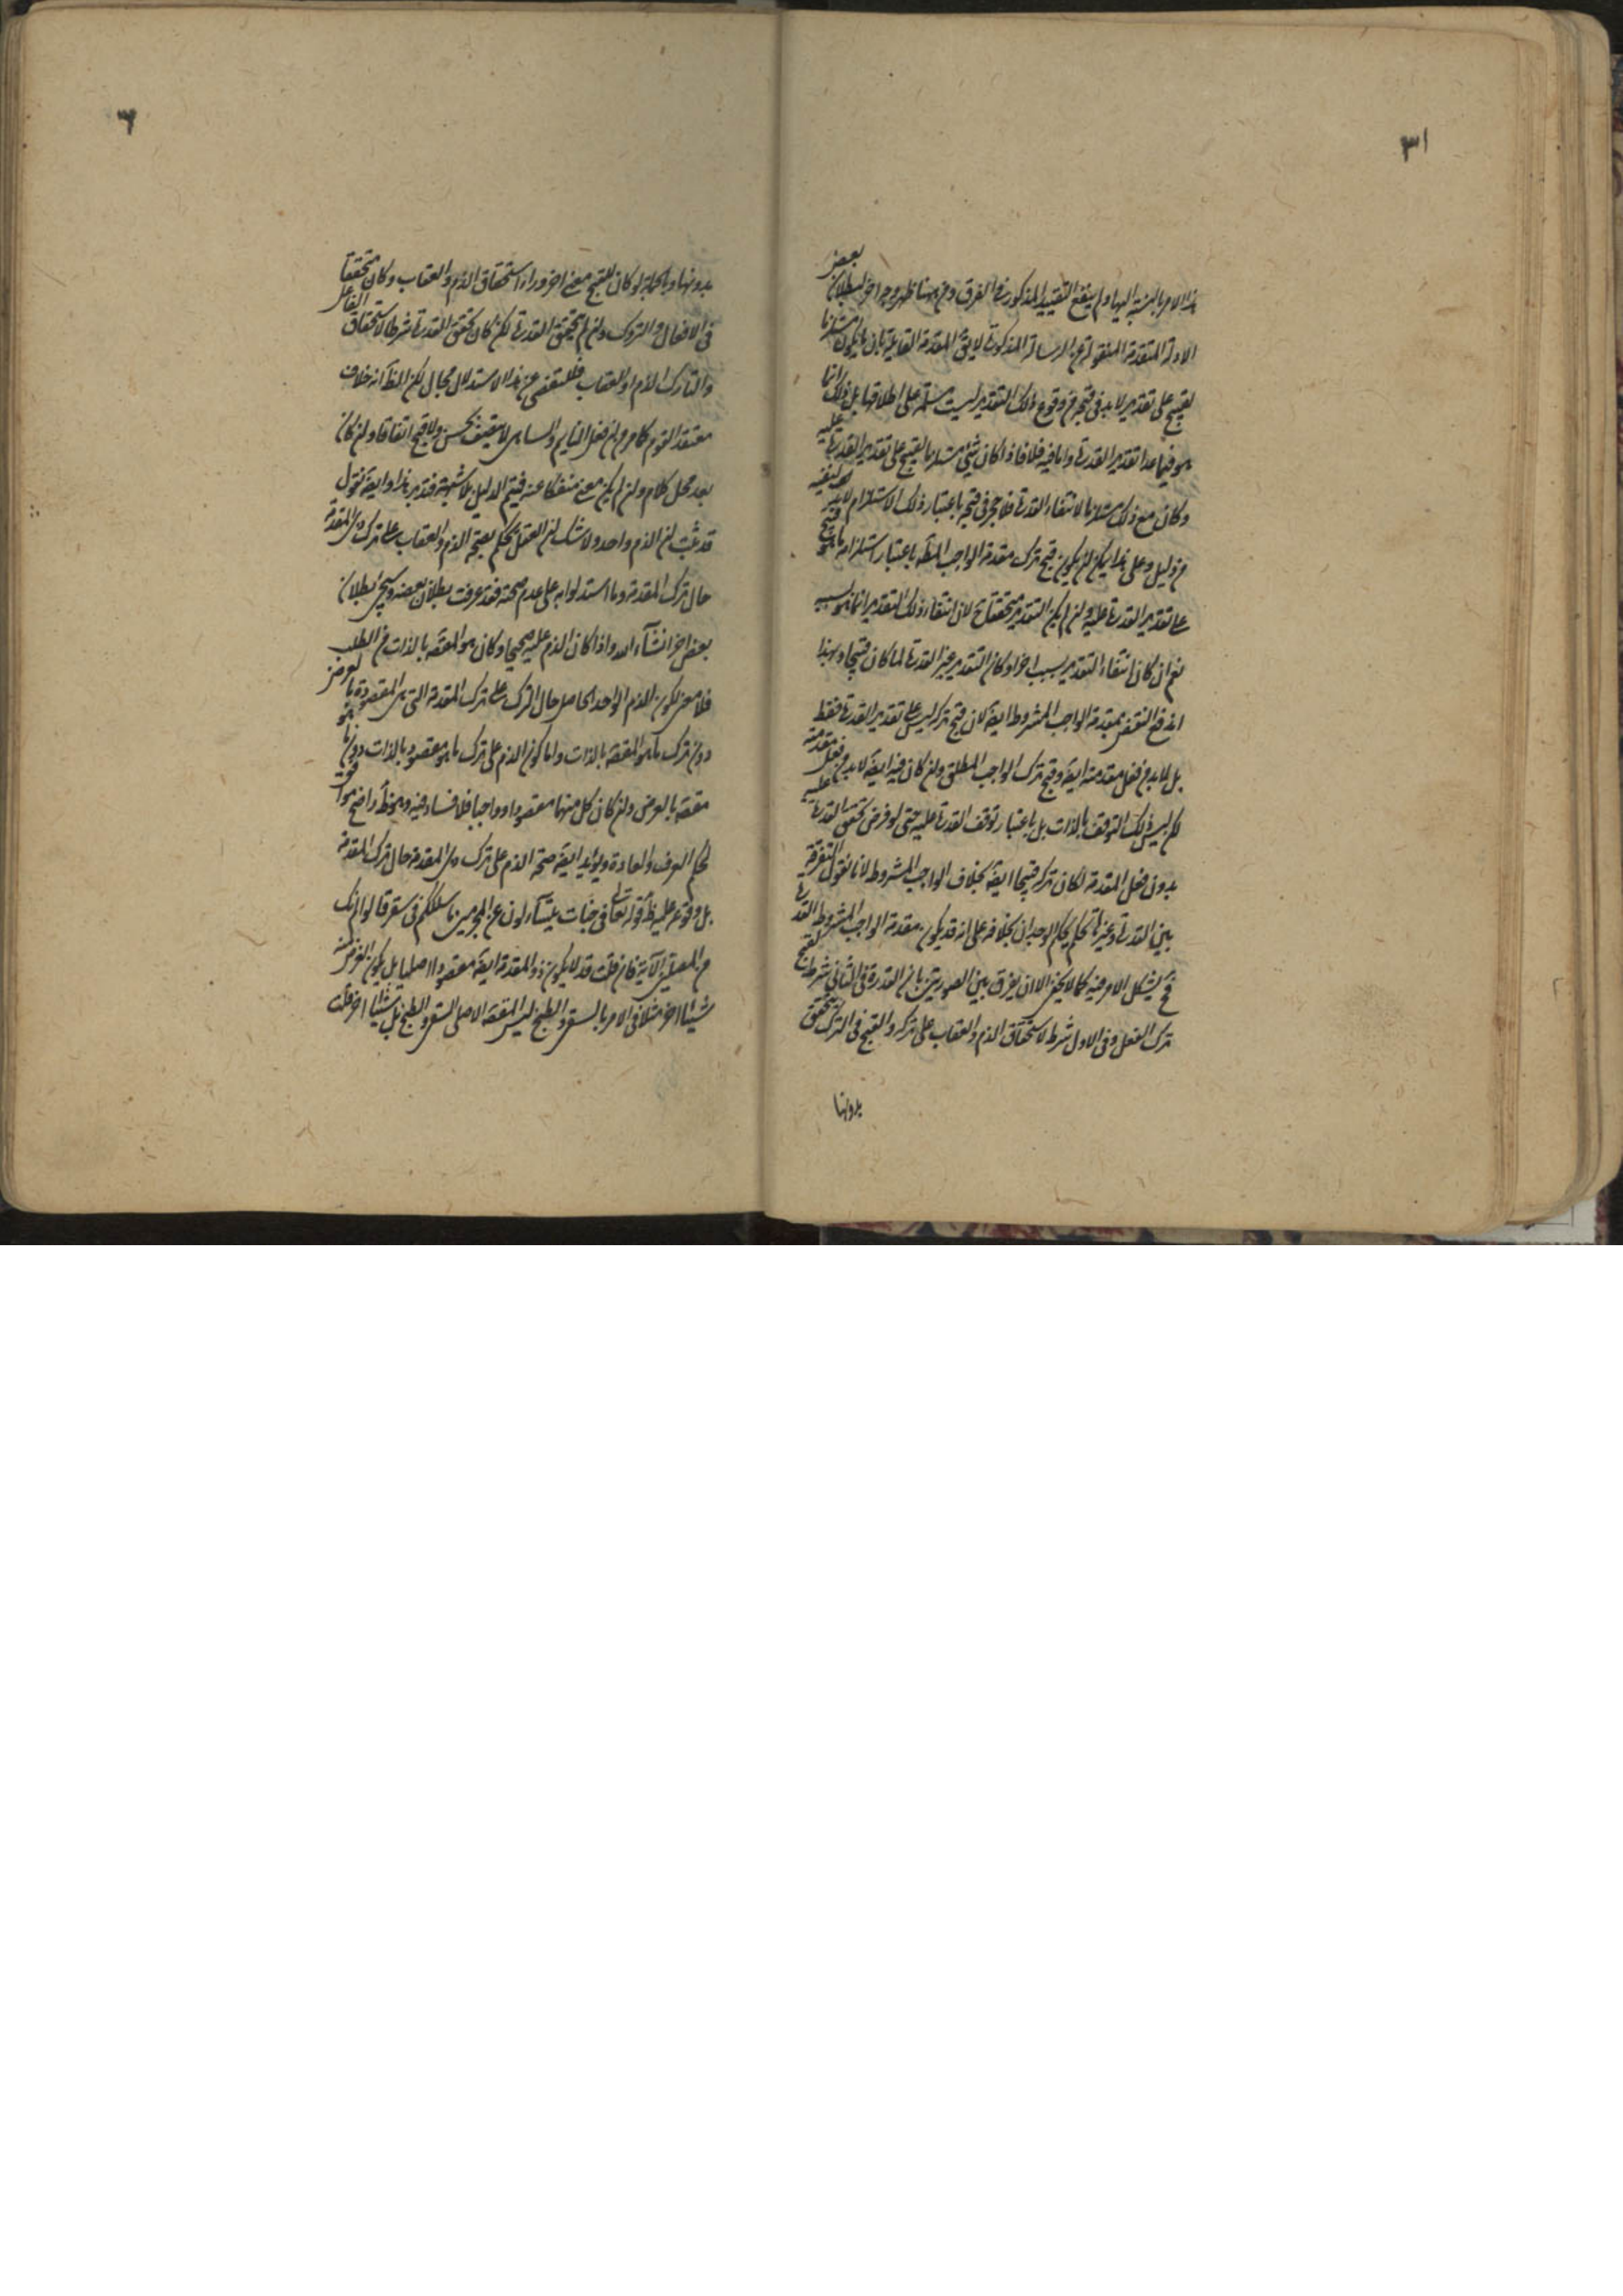 ٣١
هذا الامر بالنسبة اليها ولم ينفع التقييد المذكور في الفرق ومن ههنا ظهر وجه اخر لبطلان بعض
الادلة المتقدمة المنقولة عن الرسالة المذكورة لان المقدمة القايلة بان ما يكون مستلزما
لقبيح على تقدير لابد في قبحه من وقوع ذلك التقدير ليست مسلمة على اطلاقها بل ذلك انما
هو فيما عدا تقدير القدرة واما فيه فلا فاذا كان شيء مستلزما لقبيح على تقدير القدرة عليه
وكان مع ذلك مستلزما لانتفاء القدرة فلا حجر في قبحه باعتبار ذلك الاستلزام لابد لنفيه
من دليل وعلى هذا يمكن ان يكون قبح ترك مقدمة الواجب المط باعتبار استلزامه لما هو قبيح
على تقدير القدرة عليه وان لم يكن التقدير متحققا ح لان انتفاء ذلك التقدير انما هو بسببه
نعم ان كان انتفاء التقدير بسبب اخر او كان التقدير غير القدرة لما كان قبيحا وبهذا
اندفع النقض بمقدمة الواجب المشروط ايضا لان قبح تركه ليس على تقدير القدرة فقط
بل لابد من فعل مقدمته ايضا وقبح ترك الواجب المطلق وان كان فيه ايضا لابد من فعل مقدمته
لكن ليس ذلك التوقف بالذات بل باعتبار توقف القدرة عليه حتى لو فرض تحقق القدرة عليه
بدون فعل المقدمة لكان تركه قبيحا ايضا بخلاف الواجب المشروط لانا نقول التفرقة
بين القدرة وغيرها تحكم يحكم الوجدان بخلافه على انه قد يكون مقدمة الواجب المشروط القدرة
فح يشكل الامر فيه كما لا يخفى الا ان يفرق بين الصورتين بان القدرة في الثاني شرط لقبح
ترك الفعل وفي الاول شرط لاستحقاق الذم والعقاب على تركه والقبح في الترك متحقق
بدونها
٣٢
بدونها وبالجملة لو كان للقبح معنى اخر وراء استحقاق الذم والعقاب وكان متحققا
في الافعال والتروك وان لم يتحقق القدرة لكن كان تحقق القدرة شرطا لاستحقاق الفاعل
والتارك الذم او العقاب فللتفصي عن هذا الاستدلال مجال لكن الظ انه خلاف
معتقد القوم كما مر من ان فعل النايم والساهي لا يتصف بحسن ولا قبح اتفاقا وان كان
بعد محل كلام وان لم يكن معنى منفكا عنه فيتم الدليل بلا شبهة فتدبر هذا وايضا نقول
قد ثبت ان الذم واحد ولا شك ان العقل يحكم بصحة الذم والعقاب على ترك ذي المقدمة
حال ترك المقدمة وما استدلوا به على عدم صحته فقد عرفت بطلان بعضه وسيجيء بطلان
بعض اخر انشاء الله واذا كان الذم عليه صحيحا وكان هو المقصد بالذات من الطلب
فلا معنى لكون الذم الواحد الحاصل حال الترك على ترك المقدمة التي هي المقصودة بالعرض
دون ترك ما هو المقصد بالذات واما كون الذم على ترك ما هو مقصود بالذات دون ما هو
مقصد بالعرض وان كان كل منهما مقصودا وواجبا فلا فساد فيه وهو ظ واضح موافق
لحكم العرف والعادة ويؤيد ايضا صحة الذم على ترك ذي المقدمة حال ترك المقدمة
بل وقوعه عليه ظ قوله تعالى في جنات يتساءلون عن المجرمين ما سلككم في سقر قالوا لم نك
من المصلين الآية فان قلت قد لا يكون ذو المقدمة ايضا مقصودا اصليا بل يكون الغرض منه
شيئا اخر مثلا في الامر بالسقي والطبخ ليس المقصد الاصلي السقي والطبخ بل شيئا اخر قلت